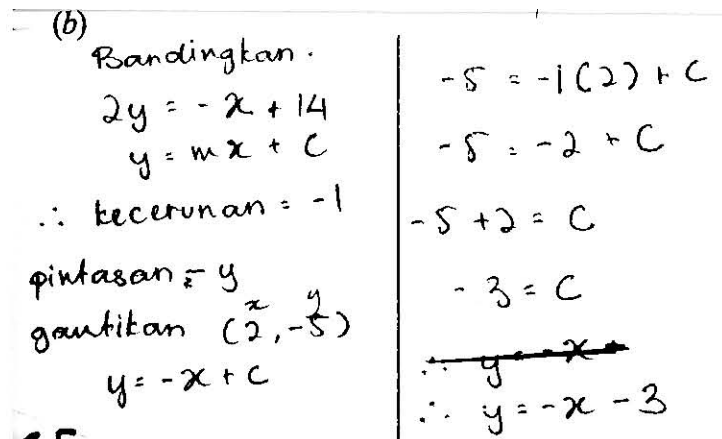 (b)
Bandingkan.
2y = -x + 14
y = mx + C
∴ kecerunan = -1
pintasan - y
gantikan (2, -5)
x y
y = -x + C
-5 = -1(2) + C
-5 = -2 + C
-5 + 2 = C
-3 = C
∴ y = -x +
∴ y = -x - 3